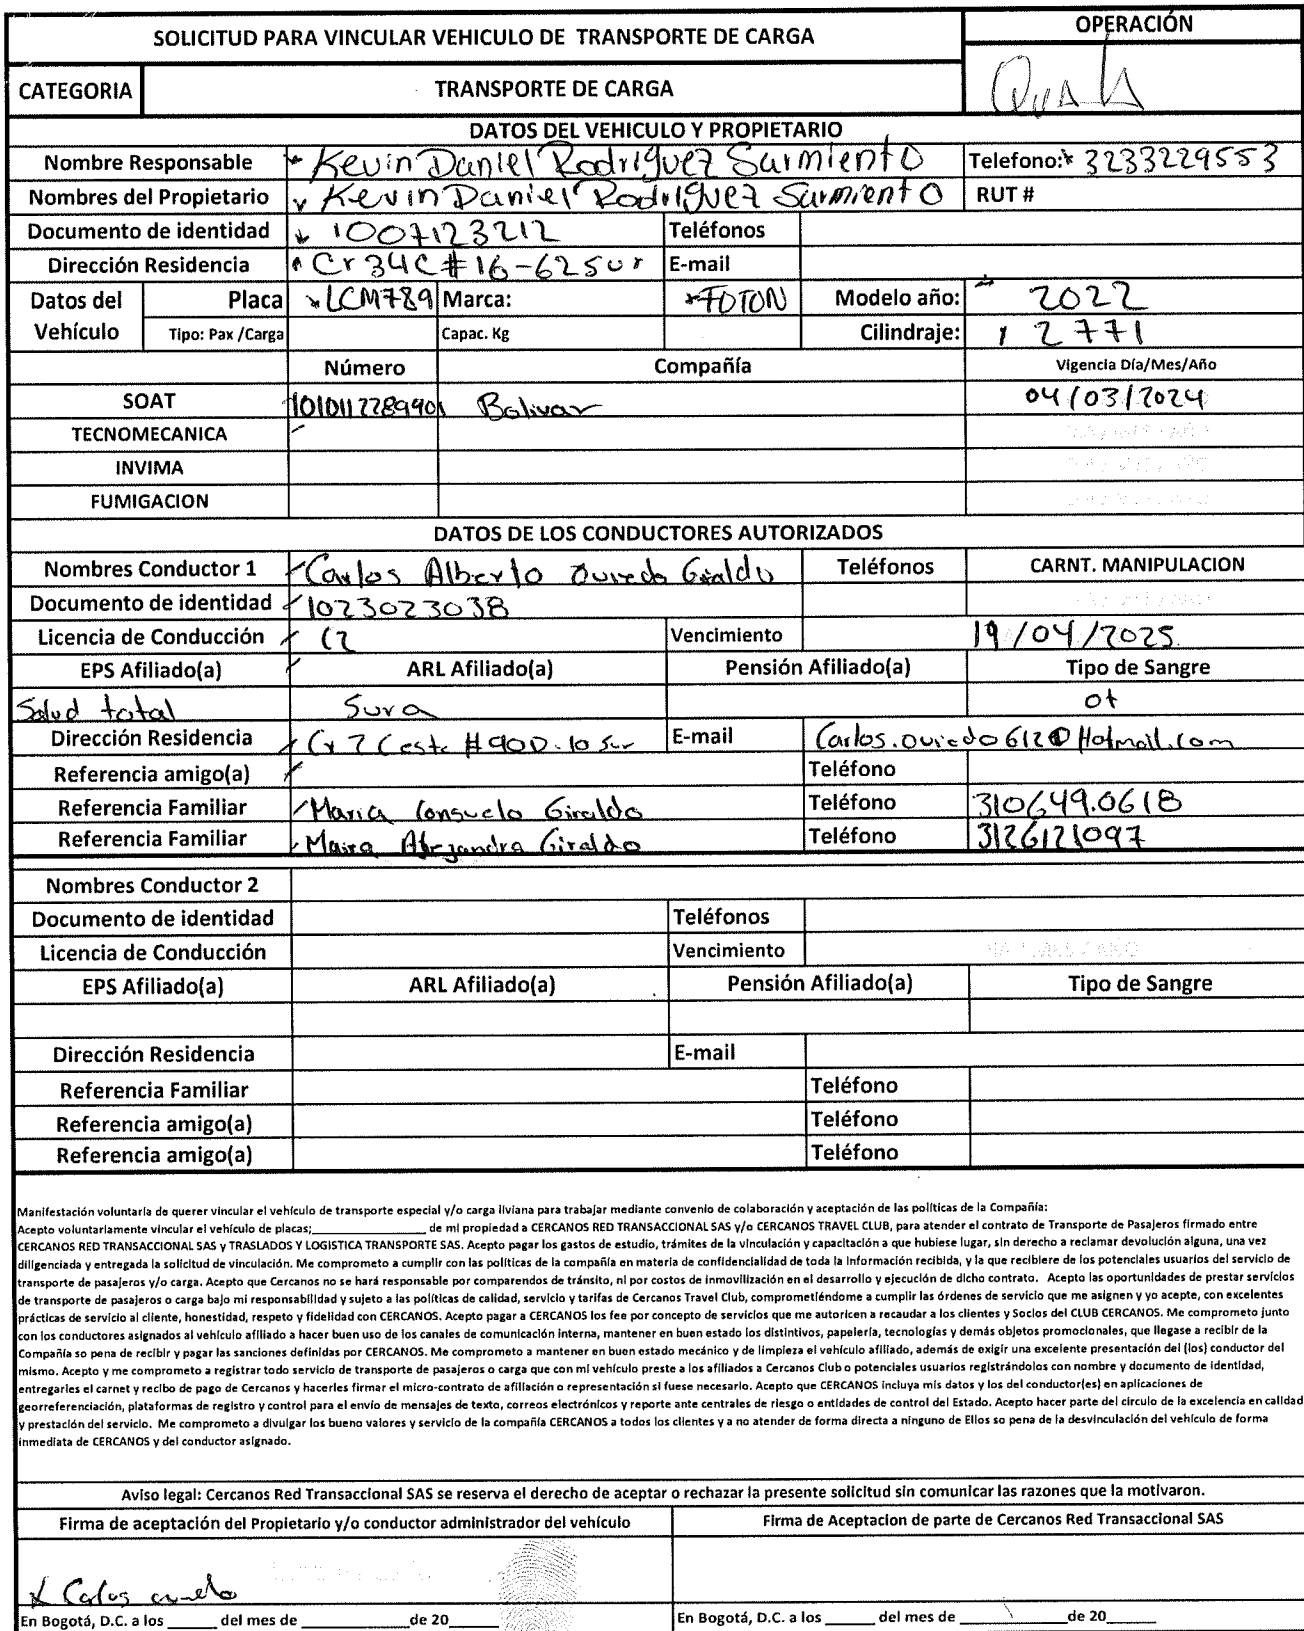 SOLICITUD PARA VINCULAR VEHICULO DE TRANSPORTE DE CARGA
OPERACIÓN
CATEGORIA TRANSPORTE DE CARGA
DATOS DEL VEHICULO Y PROPIETARIO
Nombre Responsable Kevin Daniel Rodriguez Sarmiento Telefono: 3233229553
Nombres del Propietario Kevin Daniel Rodriguez Sarmiento RUT #
Documento de identidad 1007123212 Teléfonos
Dirección Residencia Cr 34C # 16-62 Sur E-mail
Datos del Vehículo Placa LCM789 Marca: FOTON Modelo año: 2022
Tipo: Pax /Carga Capac. Kg Cilindraje: 2771
Número Compañía Vigencia Día/Mes/Año
SOAT 1010112289901 Bolivar 04/03/2024
TECNOMECANICA
INVIMA
FUMIGACION
DATOS DE LOS CONDUCTORES AUTORIZADOS
Nombres Conductor 1 Carlos Alberto Oviedo Giraldo Teléfonos CARNT. MANIPULACION
Documento de identidad 1023023038
Licencia de Conducción C2 Vencimiento 19/04/2025
EPS Afiliado(a) ARL Afiliado(a) Pensión Afiliado(a) Tipo de Sangre
Salud total Sura o+
Dirección Residencia Cr 7 Ceste # 90D-10 Sur E-mail Carlos.oviedo612@Hotmail.com
Referencia amigo(a) Teléfono
Referencia Familiar Maria Consuelo Giraldo Teléfono 310649.0618
Referencia Familiar Maira Alejandra Giraldo Teléfono 3126121097
Nombres Conductor 2
Documento de identidad Teléfonos
Licencia de Conducción Vencimiento
EPS Afiliado(a) ARL Afiliado(a) Pensión Afiliado(a) Tipo de Sangre
Dirección Residencia E-mail
Referencia Familiar Teléfono
Referencia amigo(a) Teléfono
Referencia amigo(a) Teléfono
Manifestación voluntaria de querer vincular el vehículo de transporte especial y/o carga liviana para trabajar mediante convenio de colaboración y aceptación de las políticas de la Compañía:
Acepto voluntariamente vincular el vehículo de placas;______________ de mi propiedad a CERCANOS RED TRANSACCIONAL SAS y/o CERCANOS TRAVEL CLUB, para atender el contrato de Transporte de Pasajeros firmado entre
CERCANOS RED TRANSACCIONAL SAS y TRASLADOS Y LOGISTICA TRANSPORTE SAS. Acepto pagar los gastos de estudio, trámites de la vinculación y capacitación a que hubiese lugar, sin derecho a reclamar devolución alguna, una vez
diligenciada y entregada la solicitud de vinculación. Me comprometo a cumplir con las políticas de la compañía en materia de confidencialidad de toda la información recibida, y la que recibiere de los potenciales usuarios del servicio de
transporte de pasajeros y/o carga. Acepto que Cercanos no se hará responsable por comparendos de tránsito, ni por costos de inmovilización en el desarrollo y ejecución de dicho contrato. Acepto las oportunidades de prestar servicios
de transporte de pasajeros o carga bajo mi responsabilidad y sujeto a las políticas de calidad, servicio y tarifas de Cercanos Travel Club, comprometiéndome a cumplir las órdenes de servicio que me asignen y yo acepte, con excelentes
prácticas de servicio al cliente, honestidad, respeto y fidelidad con CERCANOS. Acepto pagar a CERCANOS los fee por concepto de servicios que me autoricen a recaudar a los clientes y Socios del CLUB CERCANOS. Me comprometo junto
con los conductores asignados al vehículo afiliado a hacer buen uso de los canales de comunicación interna, mantener en buen estado los distintivos, papelería, tecnologías y demás objetos promocionales, que llegase a recibir de la
Compañía so pena de recibir y pagar las sanciones definidas por CERCANOS. Me comprometo a mantener en buen estado mecánico y de limpieza el vehículo afiliado, además de exigir una excelente presentación del (los) conductor del
mismo. Acepto y me comprometo a registrar todo servicio de transporte de pasajeros o carga que con mi vehículo preste a los afiliados a Cercanos Club o potenciales usuarios registrándolos con nombre y documento de identidad,
entregarles el carnet y recibo de pago de Cercanos y hacerles firmar el micro-contrato de afiliación o representación si fuese necesario. Acepto que CERCANOS incluya mis datos y los del conductor(es) en aplicaciones de
georreferenciación, plataformas de registro y control para el envío de mensajes de texto, correos electrónicos y reporte ante centrales de riesgo o entidades de control del Estado. Acepto hacer parte del círculo de la excelencia en calidad
y prestación del servicio. Me comprometo a divulgar los bueno valores y servicio de la compañía CERCANOS a todos los clientes y a no atender de forma directa a ninguno de Ellos so pena de la desvinculación del vehículo de forma
inmediata de CERCANOS y del conductor asignado.
Aviso legal: Cercanos Red Transaccional SAS se reserva el derecho de aceptar o rechazar la presente solicitud sin comunicar las razones que la motivaron.
Firma de aceptación del Propietario y/o conductor administrador del vehículo Firma de Aceptacion de parte de Cercanos Red Transaccional SAS
Carlos
En Bogotá, D.C. a los ______ del mes de _____________de 20______ En Bogotá, D.C. a los ______ del mes de _____________de 20______